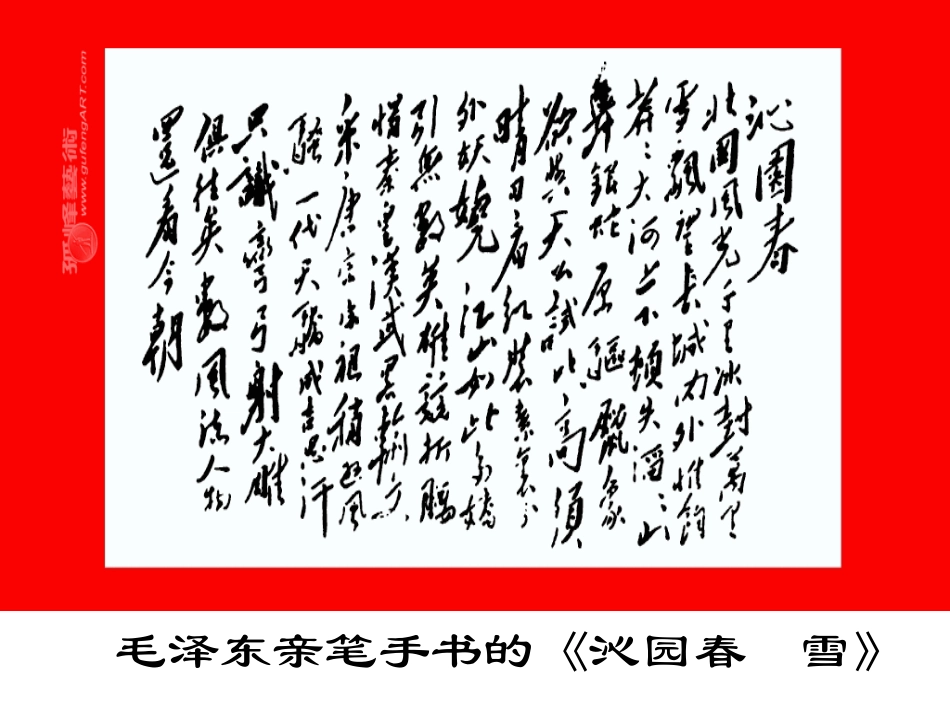 沁園春
北國風光千里冰封萬里
雪飄望長城內外惟餘
莽〻大河上下頓失滔〻山
舞銀蛇原驅臘象
欲與天公試比高須
晴日看紅裝素裹分
外妖嬈江山如此多嬌
引無數英雄競折腰
惜秦皇漢武畧輸文
采唐宗宋祖稍遜風
騷一代天驕成吉思汗
只識彎弓射大雕
俱往矣數風流人物
還看今朝
www.gufengART.com
藝術
毛泽东亲笔手书的《沁园春 雪》